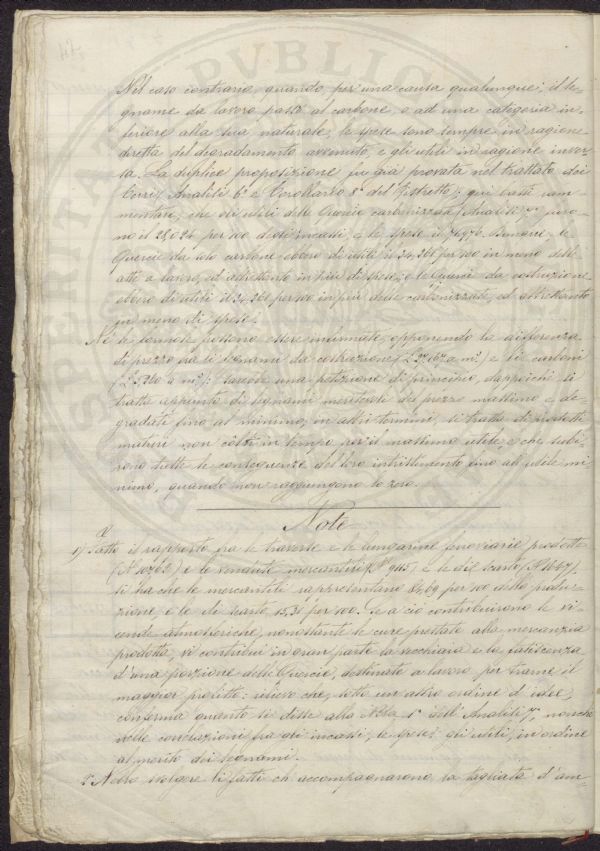 Nel caso contrario, quando, per una causa qualunque, il le-
gname da lavoro passi al carbone, o ad una categoria in-
feriore alla sua naturale, le spese sono sempre in ragione
diretta del degradamento avvenuto, e gli utili in ragione inver-
sa. La duplice proposizione fu già provata nel trattato dei
Cerri, Analisi 6ª e Corollario 8º del Distretto; qui basti ram-
mentare, che gli utili delle Quercie carbonizzate (Analisi) fu-
rono il 23,024 per 100 degli incassi, e le spese il 76,976. Laonde le
Quercie da solo carbone ebero di utili il 24,261 per 100 in meno delle
atte a lavoro, ed altrettanto in più di spese, e le Quercie da costruzione
ebero di utili il 24,261 per 100 in più delle carbonizzate, ed altrettanto
in meno di spese.
Nè le formole possono essere infirmate, opponendo la differenza
di prezzo fra i legnami da costruzione e li carboni
sarebbe una petizione di principio, dappoichè si
tratta appunto di legnami meritevoli del prezzo massimo e de-
gradati fino al minimo; in altri termini, si tratta di prodotti
maturi non colti in tempo per il massimo utile, e che subi-
rono tutte le conseguenze del loro intristimento fino all'utile mi-
nimo, quando non raggiungono lo zero.
Note
1ª) Fatto il rapporto fra le traverse e le lungarine ferroviarie prodotte
(Nº 10762) e le vendute mercantili (Nº 9115) e le di scarto (Nº 1647),
si ha che le mercantili rappresentano 84,69 per 100 della produ-
zione, e le di scarto 15,31 per 100. Se a ciò contribuirono le vi-
cende atmosferiche, nonostante le cure prestate alla mercanzia
prodotta, vi contribuì in gran parte la vecchiaia e la fatiscenza
d'una porzione delle Quercie, destinate a lavoro per trarne il
maggior profitto: rilievo che, sotto un altro ordine d'idee,
conferma quanto si disse alla Nota 1ª dell'Analisi 7ª, nonchè
nelle correlazioni fra gli incassi, le spese, gli utili, in ordine
al merito dei legnami.
2ª Nello svolgere li fatti ch'accompagnarono la tagliata d'am-